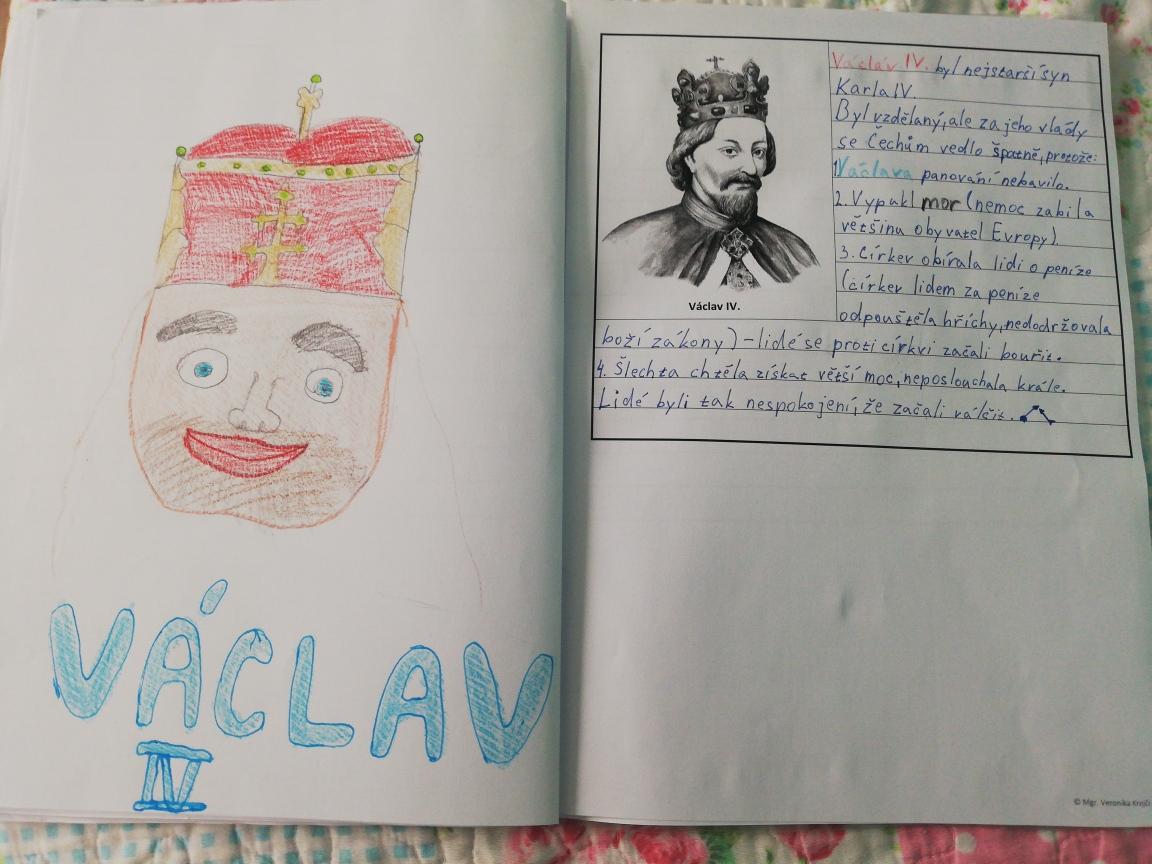 VÁCLAV
IV
Václav IV.
Václav IV. byl nejstarší syn
Karla IV.
Byl vzdělaný, ale za jeho vlády
se Čechům vedlo špatně, protože:
1. Václava panování nebavilo.
2. Vypukl mor (nemoc zabila
většinu obyvatel Evropy).
3. Církev obírala lidi o peníze
(církev lidem za peníze
odpouštěla hříchy, nedodržovala
boží zákony) - lidé se proti církvi začali bouřit.
4. Šlechta chtěla získat větší moc, neposlouchala krále.
Lidé byli tak nespokojení, že začali válčit.
© Mgr. Veronika Krejčí